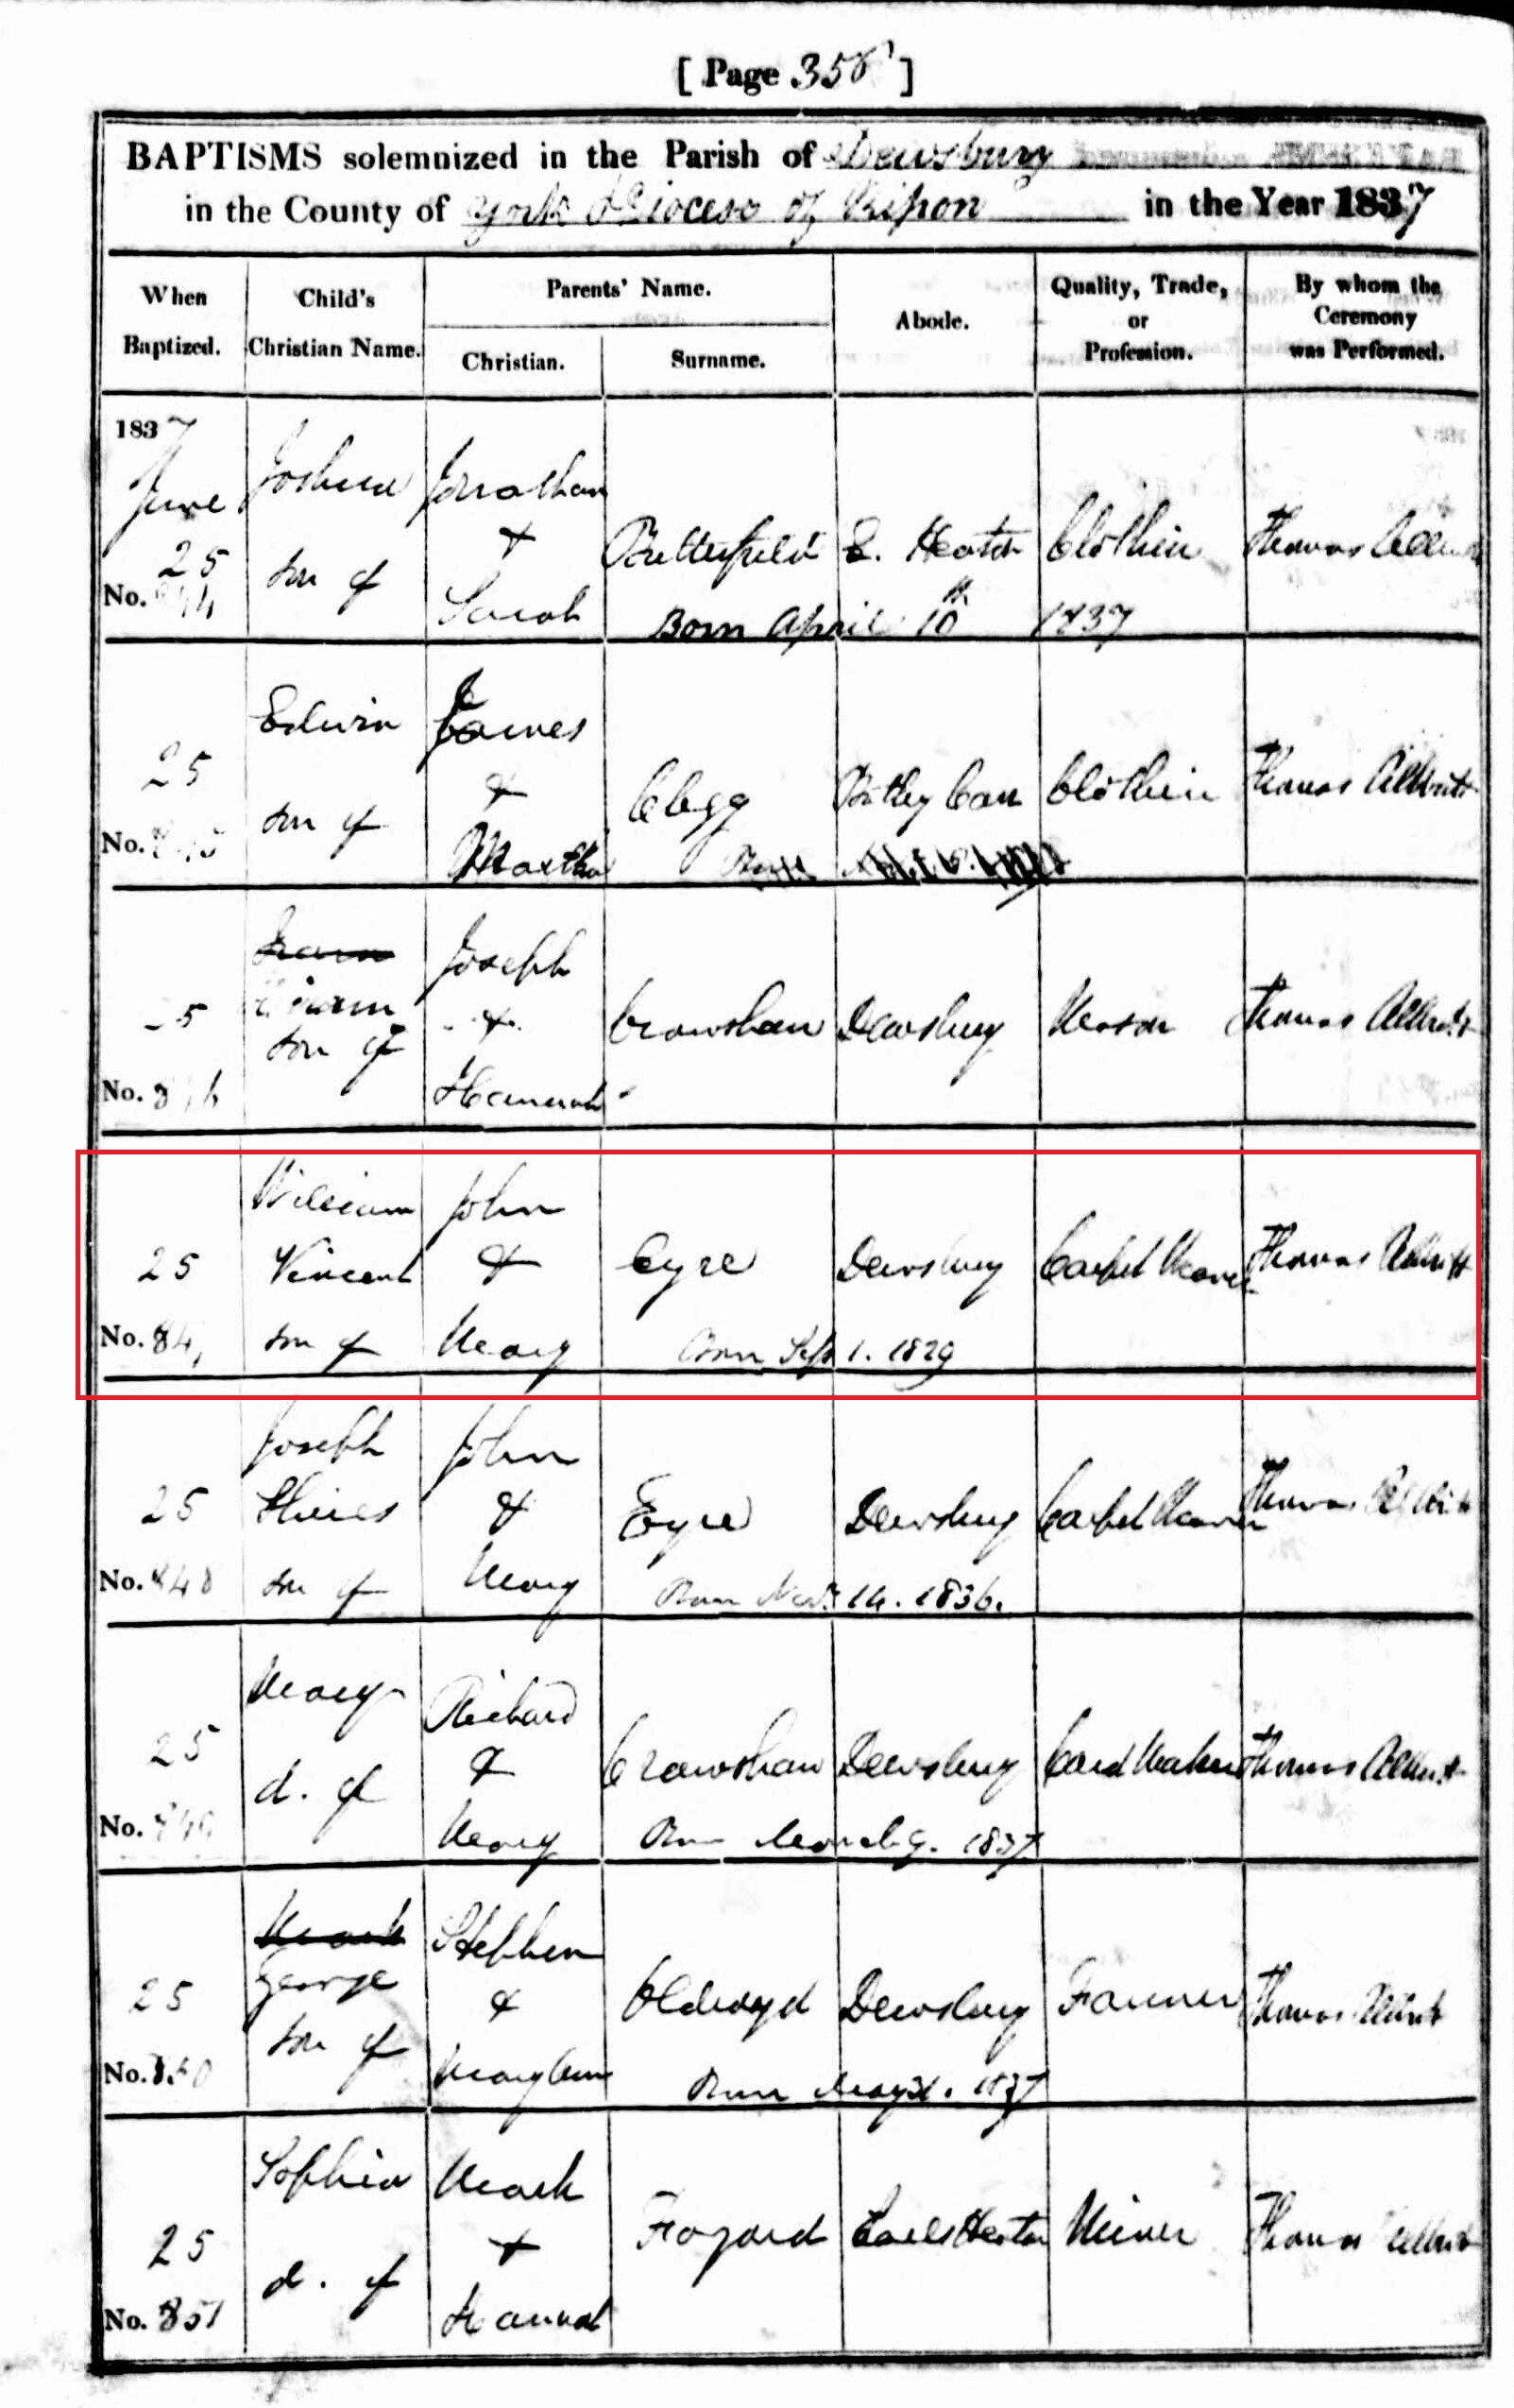 [ Page 358 ]
BAPTISMS solemnized in the Parish of Dewsbury
in the County of York Diocese of Ripon in the Year 1837
When Baptized.
Child's Christian Name.
Parents' Name.
Christian.
Surname.
Abode.
Quality, Trade, or Profession.
By whom the Ceremony was Performed.
1837
June
25
No.
Joshua
son of
Jonathan
&
Sarah
Butterfield
E. Heaton
Clothier
Thomas Allbutt
Born April 10th 1837
25
No. 845
Edwin
son of
James
&
Martha
Clegg
Batley Carr
Clothier
Thomas Allbutt
No. 846
son of
Joseph
&
Hannah
Crawshaw
Dewsbury
Mason
Thomas Allbutt
25
No. 84
William
Vincent
son of
John
&
Mary
Eyre
Dewsbury
Carpet Weaver
Thomas Allbutt
Born Sep 1. 1829
25
No. 848
Joseph
son of
John
&
Mary
Eyre
Dewsbury
Carpet Weaver
Thomas Allbutt
Born Nov. 14. 1836.
25
No. 849
Mary
d. of
Richard
&
Mary
Crawshaw
Dewsbury
Card Maker
Thomas Allbutt
Born March 9. 1837
25
No. 850
Mark
George
son of
Stephen
&
Mary Ann
Oldroyd
Dewsbury
Farmer
Thomas Allbutt
Born May 21. 1837
25
No. 851
Sophia
d. of
Mark
&
Hannah
Fozard
Earls Heaton
Miner
Thomas Allbutt